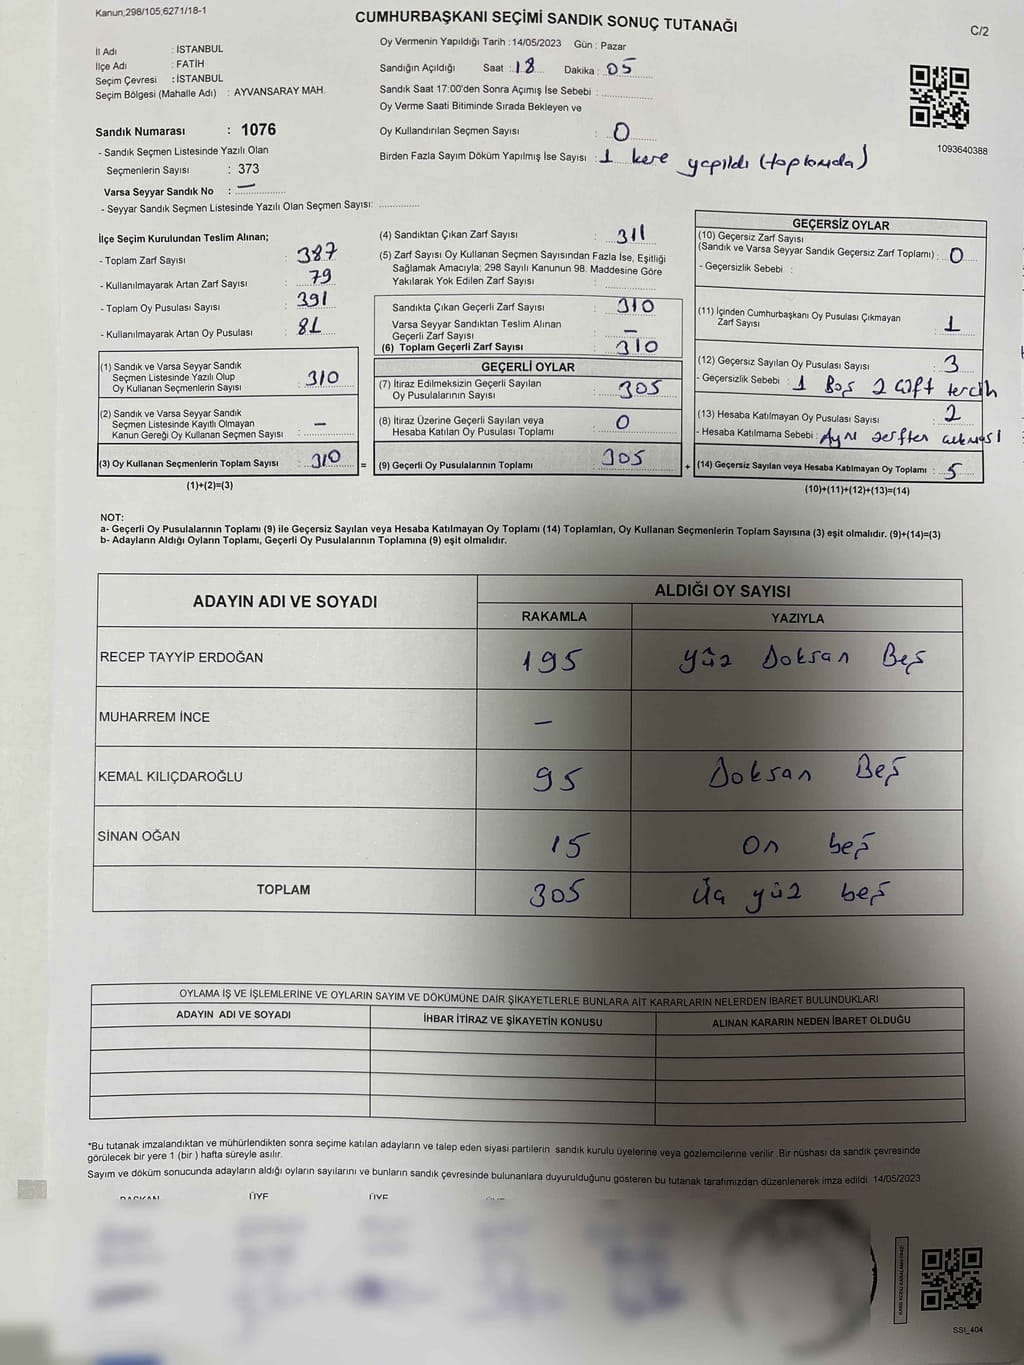 Kanun;298/105,6271/18-1
CUMHURBAŞKANI SEÇİMİ SANDIK SONUÇ TUTANAĞI
C/2
İl Adı : İSTANBUL
İlçe Adı : FATİH
Seçim Çevresi : İSTANBUL
Seçim Bölgesi (Mahalle Adı) : AYVANSARAY MAH.
Sandık Numarası : 1076
- Sandık Seçmen Listesinde Yazılı Olan
Seçmenlerin Sayısı : 373
Varsa Seyyar Sandık No : —
- Seyyar Sandık Seçmen Listesinde Yazılı Olan Seçmen Sayısı: ..............
Oy Vermenin Yapıldığı Tarih : 14/05/2023 Gün : Pazar
Sandığın Açıldığı Saat : 18 Dakika : 05
Sandık Saat 17:00'den Sonra Açımış İse Sebebi : ..................
Oy Verme Saati Bitiminde Sırada Bekleyen ve
Oy Kullandırılan Seçmen Sayısı : 0
Birden Fazla Sayım Döküm Yapılmış İse Sayısı : 1 kere yapıldı (toplamda)
1093640388
İlçe Seçim Kurulundan Teslim Alınan;
- Toplam Zarf Sayısı : 387
- Kullanılmayarak Artan Zarf Sayısı : 79
- Toplam Oy Pusulası Sayısı : 391
- Kullanılmayarak Artan Oy Pusulası : 81
(1) Sandık ve Varsa Seyyar Sandık
Seçmen Listesinde Yazılı Olup
Oy Kullanan Seçmenlerin Sayısı : 310
(2) Sandık ve Varsa Seyyar Sandık
Seçmen Listesinde Kayıtlı Olmayan
Kanun Gereği Oy Kullanan Seçmen Sayısı : —
(3) Oy Kullanan Seçmenlerin Toplam Sayısı : 310
(1)+(2)=(3)
(4) Sandıktan Çıkan Zarf Sayısı : 311
(5) Zarf Sayısı Oy Kullanan Seçmen Sayısından Fazla İse, Eşitliği
Sağlamak Amacıyla; 298 Sayılı Kanunun 98. Maddesine Göre
Yakılarak Yok Edilen Zarf Sayısı : ..................
Sandıkta Çıkan Geçerli Zarf Sayısı : 310
Varsa Seyyar Sandıktan Teslim Alınan
Geçerli Zarf Sayısı : —
(6) Toplam Geçerli Zarf Sayısı : 310
GEÇERLİ OYLAR
(7) İtiraz Edilmeksizin Geçerli Sayılan
Oy Pusulalarının Sayısı : 305
(8) İtiraz Üzerine Geçerli Sayılan veya
Hesaba Katılan Oy Pusulası Toplamı : 0
= (9) Geçerli Oy Pusulalarının Toplamı : 305
GEÇERSİZ OYLAR
(10) Geçersiz Zarf Sayısı
(Sandık ve Varsa Seyyar Sandık Geçersiz Zarf Toplamı) : 0
- Geçersizlik Sebebi :
(11) İçinden Cumhurbaşkanı Oy Pusulası Çıkmayan
Zarf Sayısı : 1
(12) Geçersiz Sayılan Oy Pusulası Sayısı : 3
- Geçersizlik Sebebi : 1 Boş 2 çift tercih
(13) Hesaba Katılmayan Oy Pusulası Sayısı : 2
- Hesaba Katılmama Sebebi : Aynı zarftan çıkması
+ (14) Geçersiz Sayılan veya Hesaba Katılmayan Oy Toplamı : 5
(10)+(11)+(12)+(13)=(14)
NOT:
a- Geçerli Oy Pusulalarının Toplamı (9) ile Geçersiz Sayılan veya Hesaba Katılmayan Oy Toplamı (14) Toplamları, Oy Kullanan Seçmenlerin Toplam Sayısına (3) eşit olmalıdır. (9)+(14)=(3)
b- Adayların Aldığı Oyların Toplamı, Geçerli Oy Pusulalarının Toplamına (9) eşit olmalıdır.
ADAYIN ADI VE SOYADI ALDIĞI OY SAYISI
RAKAMLA YAZIYLA
RECEP TAYYİP ERDOĞAN 195 yüz Doksan Beş
MUHARREM İNCE —
KEMAL KILIÇDAROĞLU 95 Doksan Beş
SİNAN OĞAN 15 On beş
TOPLAM 305 Üç yüz beş
OYLAMA İŞ VE İŞLEMLERİNE VE OYLARIN SAYIM VE DÖKÜMÜNE DAİR ŞİKAYETLERLE BUNLARA AİT KARARLARIN NELERDEN İBARET BULUNDUKLARI
ADAYIN ADI VE SOYADI İHBAR İTİRAZ VE ŞİKAYETİN KONUSU ALINAN KARARIN NEDEN İBARET OLDUĞU
*Bu tutanak imzalandıktan ve mühürlendikten sonra seçime katılan adayların ve talep eden siyasi partilerin sandık kurulu üyelerine veya gözlemcilerine verilir. Bir nüshası da sandık çevresinde
görülecek bir yere 1 (bir ) hafta süreyle asılır.
Sayım ve döküm sonucunda adayların aldığı oyların sayılarını ve bunların sandık çevresinde bulunanlara duyurulduğunu gösteren bu tutanak tarafımızdan düzenlenerek imza edildi. 14/05/2023
BAŞKAN ÜYE ÜYE
SSI_404